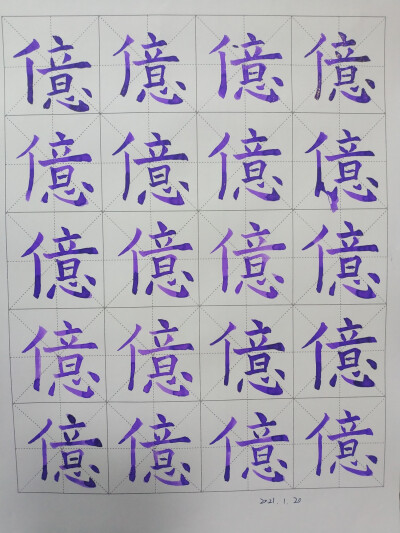 億億億億
億億億億
億億億億
億億億億
億億億億
2021.1.20